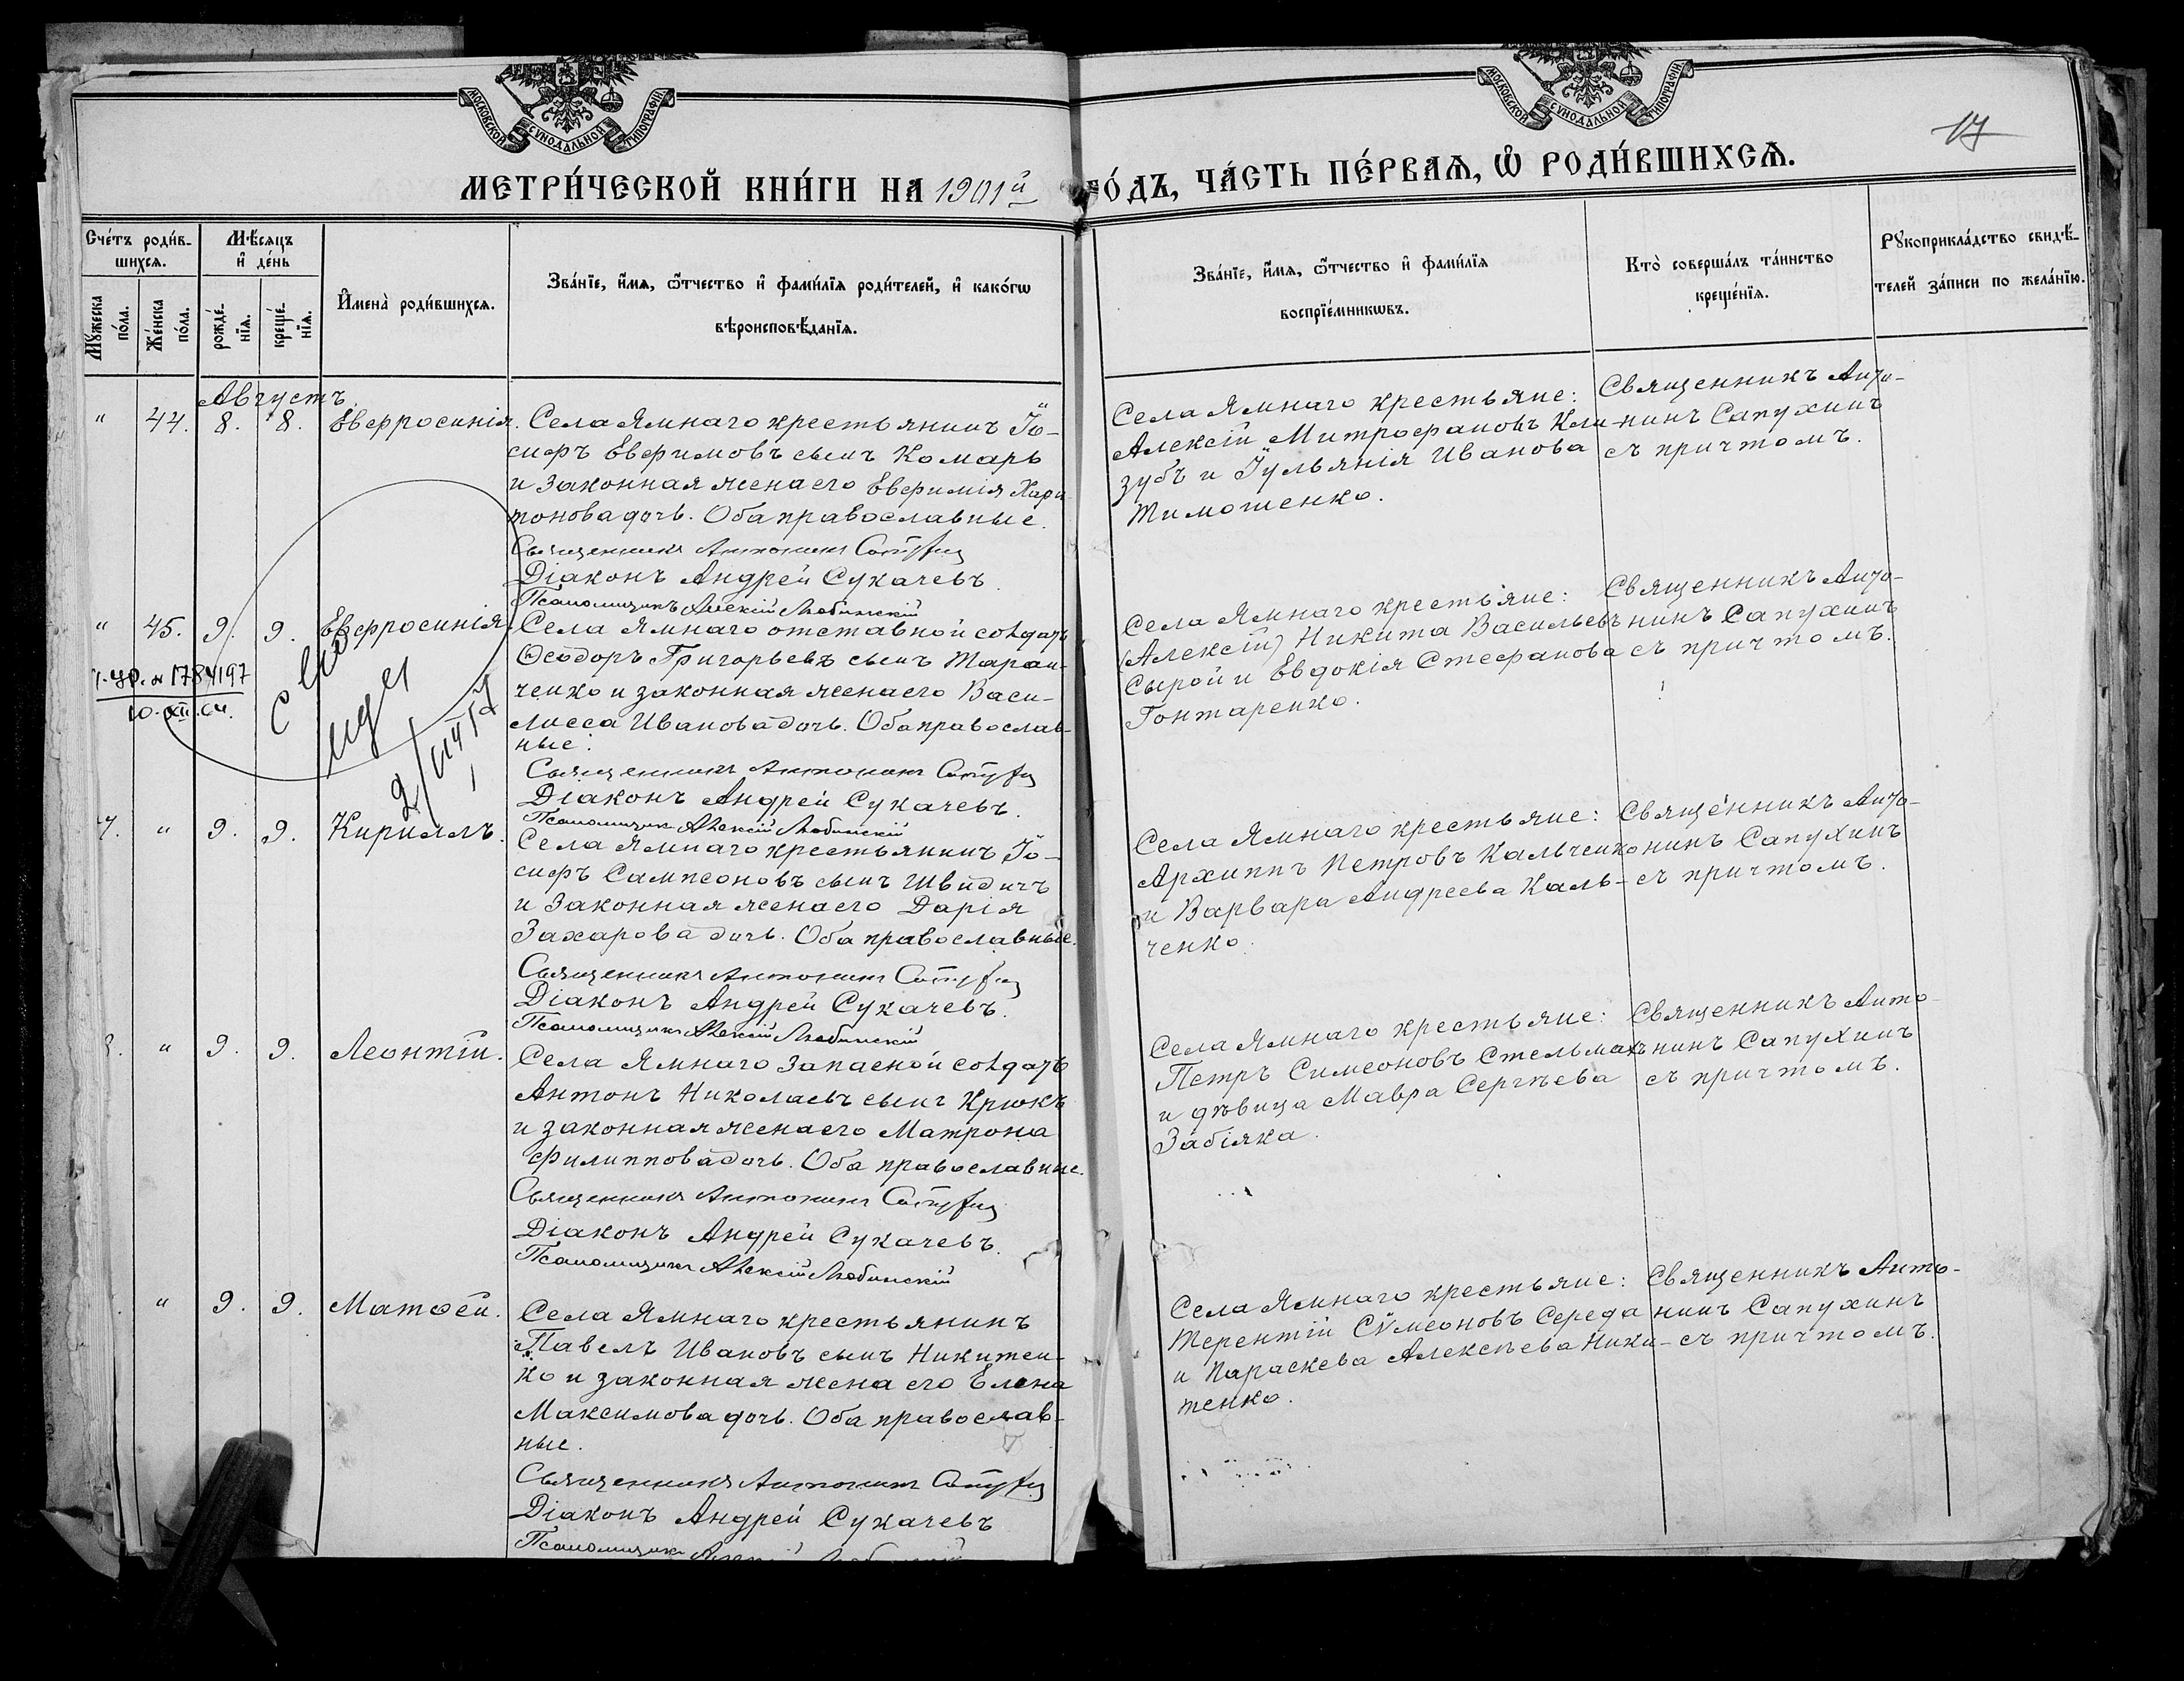 МОСКОВСКОЙ СѴНОДАЛЬНОЙ ТИПОГРАФІИ
МОСКОВСКОЙ СѴНОДАЛЬНОЙ ТИПОГРАФІИ
17
МЕТРИ́ЧЕСКОЙ КНИ́ГИ НА 1901й ГО́ДЪ, ЧА́СТЬ ПЕ́РВАѦ, Ѡ҆ РОДИ́ВШИХСѦ.
Сче́тъ роди́в-
шихсѧ.
Мѣ́сѧцъ
и҆ де́нь
Мꙋ́жеска
по́ла.
Же́нска
по́ла.
рожде́-
нїѧ.
креще́-
нїѧ.
И҆мена̀ роди́вшихсѧ.
Зва́нїе, и҆́мѧ, ѻ҆́тчество и҆ фами́лїѧ роди́телей, и҆ како́гѡ
вѣроисповѣ́данїѧ.
Зва́нїе, и҆́мѧ, ѻ҆́тчество и҆ фами́лїѧ
воспрїе́мникѡвъ.
Кто̀ соверша́лъ та́инство
креще́нїѧ.
Рꙋкоприкла́дство свидѣ́-
телей за́писи по жела́нїю.
Августъ.
" 44. 8. 8. Евфросинія.
Села Ямнаго крестьянинъ Іо-
сифъ Евфимовъ сынъ Комарь
и законная жена его Евфимія Хари
тонова дочь. Оба православные.
Священникъ Антонинъ
Діаконъ Андрей Сукачевъ.
Псаломщикъ Алексій Любинскій
Села Ямнаго крестьяне:
Алексій Митрофановъ Кли-
зубъ и Іульянія Иванова
Тимошенко.
Священникъ Анто-
нинъ Сапухинъ
съ причтомъ.
" 45. 9. 9. Евфросинія.
№ 1784197
10.XII.
Села Ямнаго отставной солдатъ
Ѳеодоръ Григорьевъ сынъ Таран-
ченко и законная жена его Васи-
лисса Иванова дочь. Оба православ-
ные.
Священникъ Антонинъ
Діаконъ Андрей Сукачевъ.
Псаломщикъ Алексій Любинскій
Села Ямнаго крестьяне:
(Алексій) Никита Васильевъ
Сырой и Евдокія Стефанова
Гонтаренко.
Священникъ Анто-
нинъ Сапухинъ
съ причтомъ.
7. " 9. 9. Кириллъ.
Села Ямнаго крестьянинъ Іо-
сифъ Сампсоновъ сынъ Швидичъ
и законная жена его Дарія
Захарова дочь. Оба православные.
Священникъ Антонинъ
Діаконъ Андрей Сукачевъ.
Псаломщикъ Алексій Любинскій
Села Ямнаго крестьяне:
Архиппъ Петровъ Кальченко
и Варвара Андреева Каль-
ченко.
Священникъ Анто-
нинъ Сапухинъ
съ причтомъ.
" 9. 9. Леонтій.
Села Ямнаго запасной солдатъ
Антонъ Николаевъ сынъ Крюкъ
и законная жена его Матрона
Филиппова дочь. Оба православные.
Священникъ Антонинъ
Діаконъ Андрей Сукачевъ.
Псаломщикъ Алексій Любинскій
Села Ямнаго крестьяне:
Петръ Симеоновъ Стельмахъ
и дѣвица Мавра Сергѣева
Забіяка.
Священникъ Анто-
нинъ Сапухинъ
съ причтомъ.
" 9. 9. Матѳей.
Села Ямнаго крестьянинъ
Павелъ Ивановъ сынъ Никитен-
ко и законная жена его Елена
Максимова дочь. Оба православ-
ные.
Священникъ Антонинъ
Діаконъ Андрей Сукачевъ
Псаломщикъ
Села Ямнаго крестьяне:
Терентій Сѵмеоновъ Середа
и Параскева Алексѣева Ники-
тенко.
Священникъ Анто-
нинъ Сапухинъ
съ причтомъ.